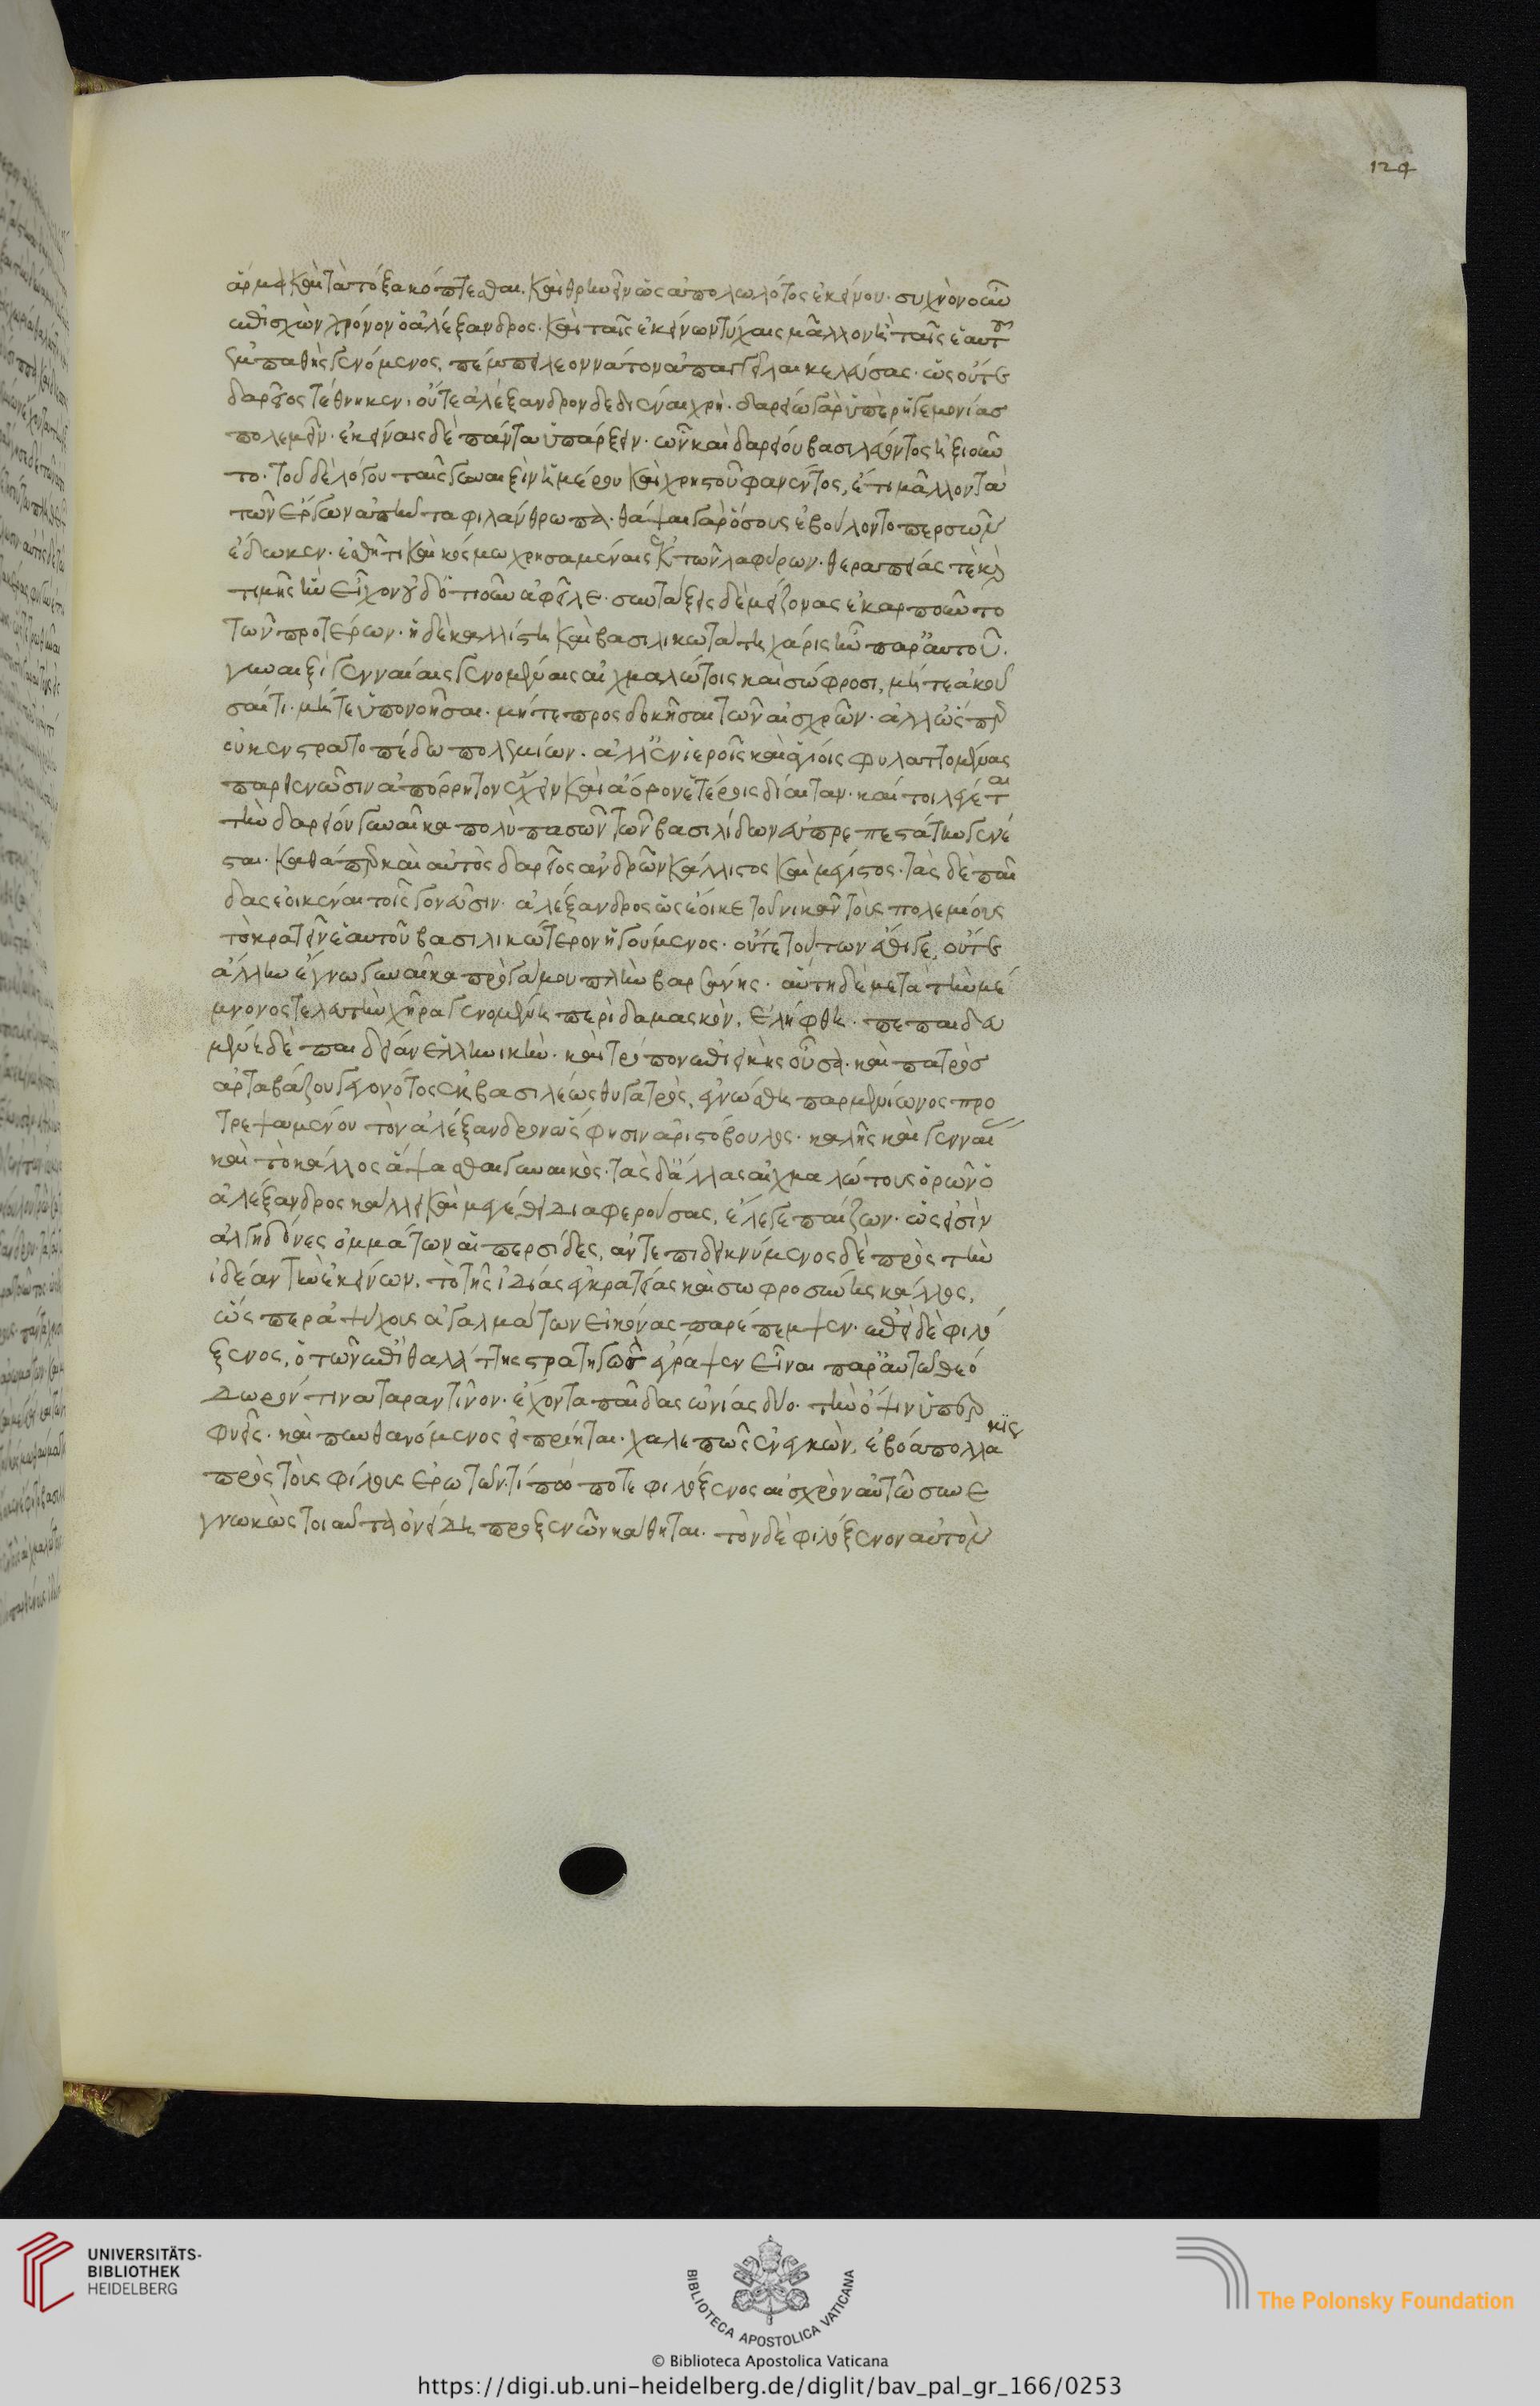 124
ἅρμα καὶ τὰ τόξα κόπτεσθαι. καὶ θρηνεῖν ὡς ἀπολωλότος ἐκείνου. συχνὸν οὖν
ἐπισχὼν χρόνον ὁ ἀλέξανδρος. καὶ ταῖς ἐκείνων τύχαις μᾶλλον ἢ ταῖς ἑαυτοῦ
ἐμπαθὴς γενόμενος, πέμπει λεοννάτον ἀπαγγεῖλαι κελεύσας. ὡς οὔτε
δαρεῖος τέθνηκεν. οὔτε ἀλέξανδρον δεδιέναι χρή. δαρείω γὰρ ὑπὲρ ἡγεμονίασ
πολεμεῖν. ἐκείναις δὲ πάντα ὑπάρξειν. ὧν καὶ δαρείου βασιλεύοντος ἠξιοῦν
το. τοῦ δὲ λόγου ταῖς γυναιξὶν ἡμέρου καὶ χρηστοῦ φανέντος, ἔτι μᾶλλον τὰ
τῶν ἔργων ἀπήντα φιλάνθρωπα. θάψαι γὰρ ὅσους ἐβούλοντο περσῶν
ἔδωκεν. ἐσθῆτι καὶ κόσμω χρησαμέναις ἐκ τῶν λαφύρων. θεραπείας τὲ καὶ
τιμῆς ἣν εἶχον οὐδ ὁτιοῦν ἀφεῖλε. συντάξεις δὲ μείζονας ἐκαρποῦντο
τῶν προτέρων. ἡ δὲ καλλίστη καὶ βασιλικωτάτη χάρις ἦν παρ αὐτοῦ.
γυναιξὶ γενναίαις γενομέναις αἰχμαλώτοις καὶ σώφροσι, μήτε ἀκοῦ
σαί τι. μήτε ὑπονοῆσαι. μήτε προσδοκῆσαι τῶν αἰσχρῶν. ἀλλ ὥσπερ
οὐκ ἐν στρατοπέδω πολεμίων. ἀλλ ἐν ἱεροῖς καὶ ἁγίοις φυλαττομένας
παρθενῶσιν ἀπόρρητον ἔχειν καὶ ἀόρον ἑτέροις δίαιταν. καί τοι λέγεται
τὴν δαρείου γυναῖκα πολὺ πασῶν τῶν βασιλίδων εὐπρεπεστάτην γενέ
σται. καθάπερ καὶ αὐτὸς δαρεῖος ἀνδρῶν κάλλιστος καὶ μέγιστος. τὰς δὲ παῖ
δας ἐοικέναι τοῖς γονεῦσιν. ἀλέξανδρος ὡς ἔοικε τοῦ νικᾶν τοὺς πολεμίους
τὸ κρατεῖν ἑαυτοῦ βασιλικώτερον ἡγούμενος. οὔτε τούτων ἔθιγε, οὔτε
ἄλλην ἔγνω γυναῖκα πρὸ γάμου πλὴν βαρσίνης. αὕτη δὲ μετὰ τὴν μέ
μνονος τελευτὴν χήρα γενομένη περὶ δαμασκὸν, ἐλήφθη. πεπαιδευ
μένη δὲ παιδείαν ἑλληνικὴν. καὶ τρόπον ἐπιεικὴς οὖσα. καὶ πατρὸσ
ἀρταβάζου γεγονότος ἐκ βασιλέως θυγατρὸς, ἐγνώσθη παρμενίωνος προ
τρεψαμένου τὸν ἀλέξανδρον ὥς φησιν ἀριστόβουλος. καλῆς καὶ γενναίας
καὶ τὸ κάλλος ἅψασθαι γυναικὸς. τὰς δ ἄλλας αἰχμαλώτους ὁρῶν ὁ
ἀλέξανδρος κάλλει καὶ μεγέθει διαφερούσας, ἔλεγε παίζων. ὡς εἰσὶν
ἀλγηδόνες ὀμμάτων αἱ περσίδες, ἀντεπιδεικνύμενος δὲ πρὸς τὴν
ἰδέαν τὴν ἐκείνων. τὸ τῆς ἰδίας ἐγκρατείας καὶ σωφροσύνης κάλλος,
ὥσπερ ἀψύχους ἀγαλμάτων εἰκόνας παρέπεμψεν. ἐπεὶ δὲ φιλό
ξενος, ὁ τῶν ἐπὶ θαλάττης στρατηγὸς ἔγραψεν εἶναι παρ αὐτῶ θεό
δωρόν τινα ταραντῖνον. ἔχοντα παῖδας ὠνίας δύο. τὴν ὄψιν ὑπερ
φυεῖς. καὶ πυνθανόμενος εἰ πρίηται. χαλεπῶς ἐνεγκὼν, ἐβόα πολλάκις
πρὸς τοὺς φίλους ἐρωτῶν. τί πώποτε φιλόξενος αἰσχρὸν αὐτῶ συνε
γνωκὼς τοιαῦτα ὀνείδη προξενῶν κάθηται. τὸν δὲ φιλόξενον αὐτὸν
UNIVERSITÄTS-
BIBLIOTHEK
HEIDELBERG
BIBLIOTECA APOSTOLICA VATICANA
The Polonsky Foundation
© Biblioteca Apostolica Vaticana
https://digi.ub.uni-heidelberg.de/diglit/bav_pal_gr_166/0253